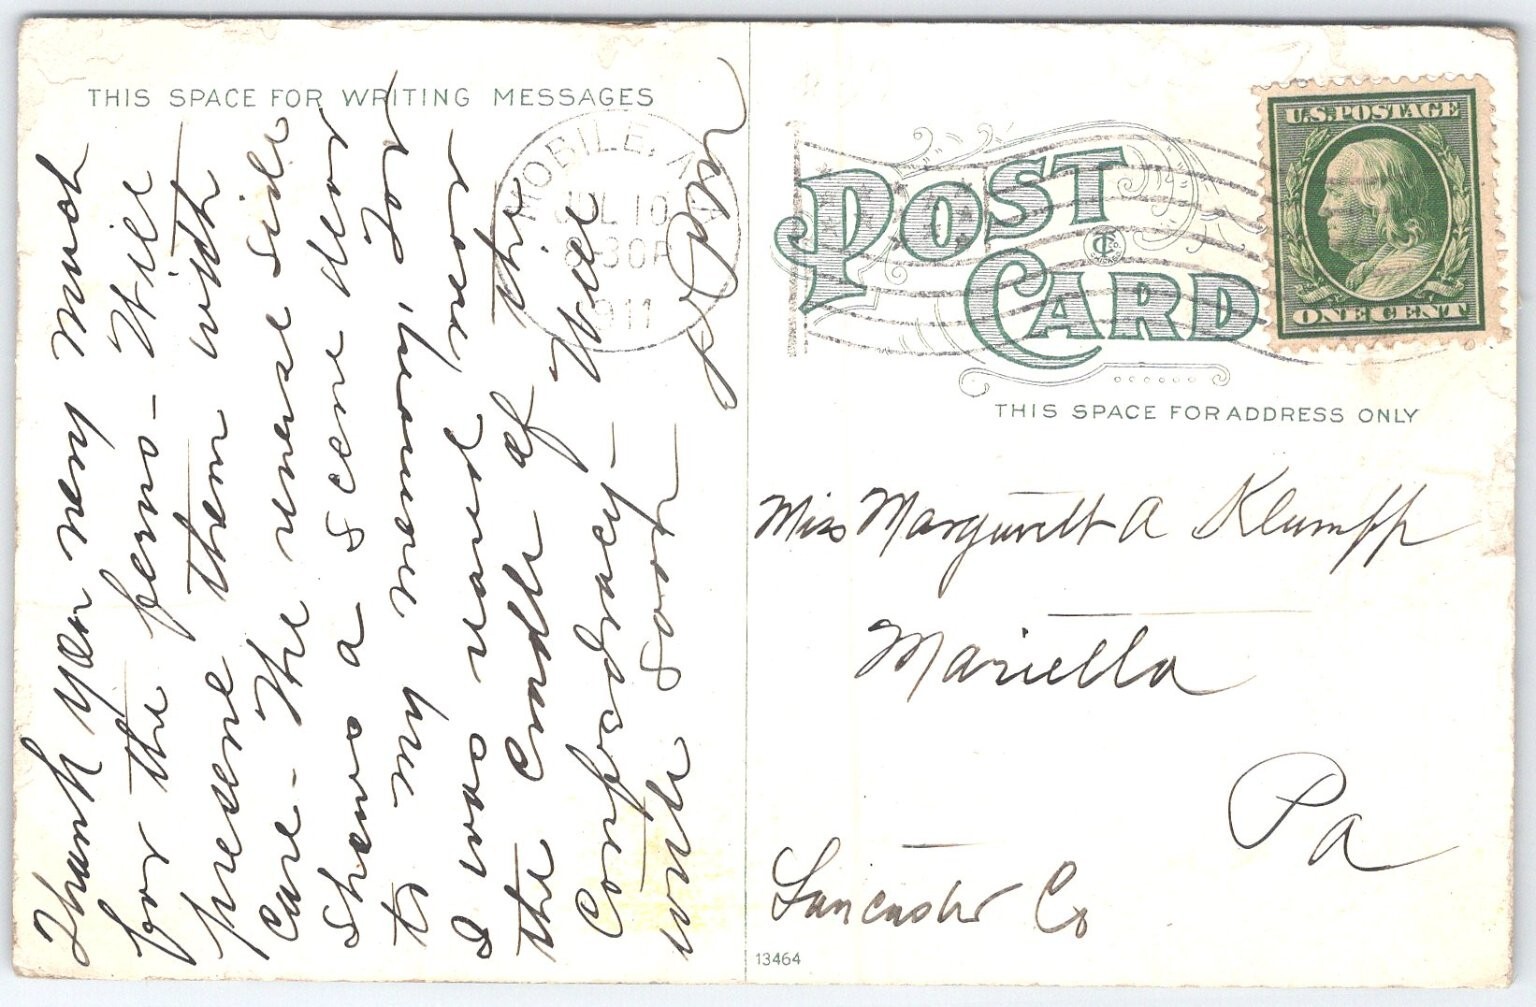 THIS SPACE FOR WRITING MESSAGES
Thank you very much
for the ferns - Will
preserve them with
care - The reverse side
shows a scene dear
to my memory, for
I was raised near
the cradle of the
Confedracy - Will
write soon -
MOBILE, ALA
JUL 10
8:30P
1911
POST CARD
U.S. POSTAGE
ONE CENT
THIS SPACE FOR ADDRESS ONLY
Miss Margurett A Klumpp
Marietta
Pa
Lancaster Co
13464